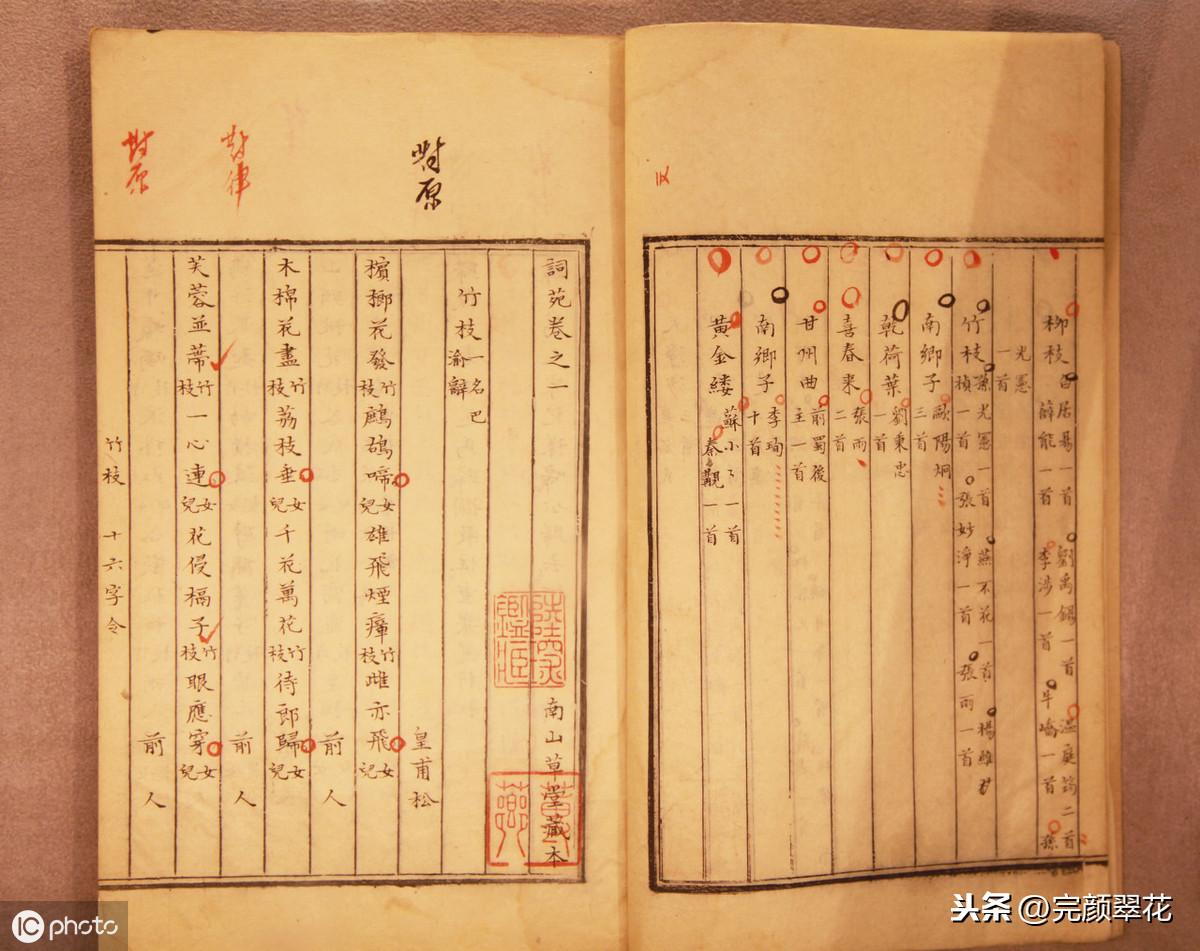 柳枝 白居易一首 劉禹錫一首 溫庭筠二首
薛能一首 李涉一首 牛嶠一首 孫
光憲
一首
竹枝 孫光憲一首 燕不花一首 楊維
楨一首 張妙淨一首 張雨一首
南鄉子 歐陽炯
三首
乾荷葉 劉秉忠
一首
喜春來 張雨
二首
甘州曲 前蜀後
主一首
南鄉子 李珣
十首
黃金縷 蘇小小一首
秦觀一首
對原
對律
對原
詞苑卷之一
南山草堂藏本
竹枝 一名巴
渝辭
皇甫松
檳榔花發竹枝鷓鴣啼女兒雄飛煙瘴竹枝雌亦飛女兒
前人
木棉花盡竹枝荔枝垂女兒千花萬花竹枝待郎歸女兒
前人
芙蓉並蒂竹枝一心連女兒花侵槅子竹枝眼應穿女兒
前人
竹枝 十六字令
iC photo
头条 @完颜翠花